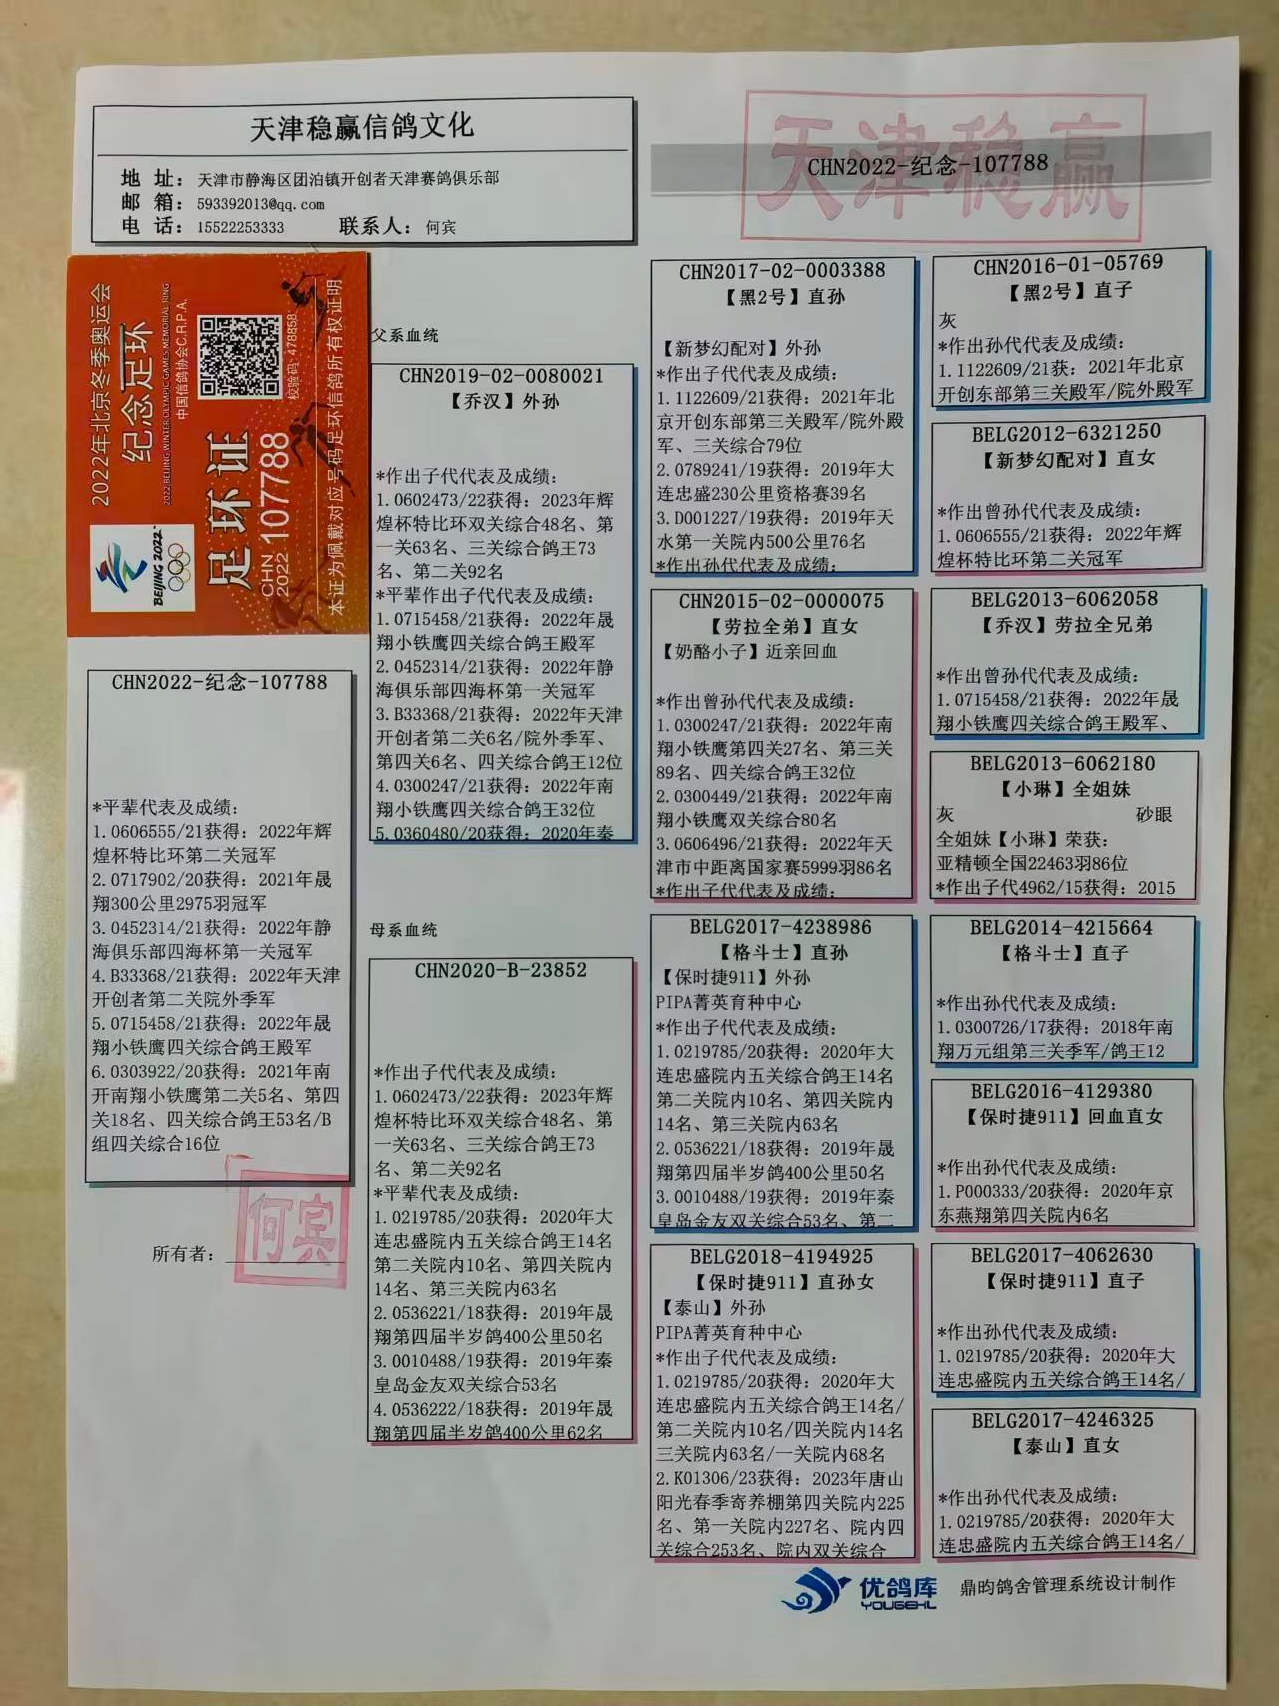 天津稳赢信鸽文化
地 址：天津市静海区团泊镇开创者天津赛鸽俱乐部
邮 箱：593392013@qq.com
电 话：15522253333 联系人：何宾
天津稳赢
CHN2022-纪念-107788
2022年北京冬季奥运会
纪念足环
2022 BEIJING WINTER OLYMPIC GAMES MEMORIAL RING
中国信鸽协会C.R.P.A.
校验码：478858
BEIJING 2022
足环证
CHN
2022
107788
本证为佩戴对应号码足环信鸽所有权证明
CHN2022-纪念-107788
*平辈代表及成绩：
1.0606555/21获得：2022年辉
煌杯特比环第二关冠军
2.0717902/20获得：2021年晟
翔300公里2975羽冠军
3.0452314/21获得：2022年静
海俱乐部四海杯第一关冠军
4.B33368/21获得：2022年天津
开创者第二关院外季军
5.0715458/21获得：2022年晟
翔小铁鹰四关综合鸽王殿军
6.0303922/20获得：2021年南
开南翔小铁鹰第二关5名、第四
关18名、四关综合鸽王53名/B
组四关综合16位
所有者：
何宾
父系血统
CHN2019-02-0080021
【乔汉】外孙
*作出子代代表及成绩：
1.0602473/22获得：2023年辉
煌杯特比环双关综合48名、第
一关63名、三关综合鸽王73
名、第二关92名
*平辈作出子代代表及成绩：
1.0715458/21获得：2022年晟
翔小铁鹰四关综合鸽王殿军
2.0452314/21获得：2022年静
海俱乐部四海杯第一关冠军
3.B33368/21获得：2022年天津
开创者第二关6名/院外季军、
第四关6名、四关综合鸽王12位
4.0300247/21获得：2022年南
翔小铁鹰四关综合鸽王32位
5.0360480/20获得：2020年秦
母系血统
CHN2020-B-23852
*作出子代代表及成绩：
1.0602473/22获得：2023年辉
煌杯特比环双关综合48名、第
一关63名、三关综合鸽王73
名、第二关92名
*平辈代表及成绩：
1.0219785/20获得：2020年大
连忠盛院内五关综合鸽王14名
第二关院内10名、第四关院内
14名、第三关院内63名
2.0536221/18获得：2019年晟
翔第四届半岁鸽400公里50名
3.0010488/19获得：2019年秦
皇岛金友双关综合53名
4.0536222/18获得：2019年晟
翔第四届半岁鸽400公里62名
CHN2017-02-0003388
【黑2号】直孙
【新梦幻配对】外孙
*作出子代代表及成绩：
1.1122609/21获得：2021年北
京开创东部第三关殿军/院外殿
军、三关综合79位
2.0789241/19获得：2019年大
连忠盛230公里资格赛39名
3.D001227/19获得：2019年天
水第一关院内500公里76名
*作出孙代代表及成绩：
CHN2015-02-0000075
【劳拉全弟】直女
【奶酪小子】近亲回血
*作出曾孙代代表及成绩：
1.0300247/21获得：2022年南
翔小铁鹰第四关27名、第三关
89名、四关综合鸽王32位
2.0300449/21获得：2022年南
翔小铁鹰双关综合80名
3.0606496/21获得：2022年天
津市中距离国家赛5999羽86名
*作出子代代表及成绩：
BELG2017-4238986
【格斗士】直孙
【保时捷911】外孙
PIPA菁英育种中心
*作出子代代表及成绩：
1.0219785/20获得：2020年大
连忠盛院内五关综合鸽王14名
第二关院内10名、第四关院内
14名、第三关院内63名
2.0536221/18获得：2019年晟
翔第四届半岁鸽400公里50名
3.0010488/19获得：2019年秦
皇岛金友双关综合53名、第二
BELG2018-4194925
【保时捷911】直孙女
【泰山】外孙
PIPA菁英育种中心
*作出子代代表及成绩：
1.0219785/20获得：2020年大
连忠盛院内五关综合鸽王14名/
第二关院内10名/四关院内14名
三关院内63名/一关院内68名
2.K01306/23获得：2023年唐山
阳光春季寄养棚第四关院内225
名、第一关院内227名、院内四
关综合253名、院内双关综合
CHN2016-01-05769
【黑2号】直子
灰
*作出孙代代表及成绩：
1.1122609/21获：2021年北京
开创东部第三关殿军/院外殿军
BELG2012-6321250
【新梦幻配对】直女
*作出曾孙代代表及成绩：
1.0606555/21获得：2022年辉
煌杯特比环第二关冠军
BELG2013-6062058
【乔汉】劳拉全兄弟
*作出曾孙代代表及成绩：
1.0715458/21获得：2022年晟
翔小铁鹰四关综合鸽王殿军、
BELG2013-6062180
【小琳】全姐妹
灰 砂眼
全姐妹【小琳】荣获：
亚精顿全国22463羽86位
*作出子代4962/15获得：2015
BELG2014-4215664
【格斗士】直子
*作出孙代代表及成绩：
1.0300726/17获得：2018年南
翔万元组第三关季军/鸽王12
BELG2016-4129380
【保时捷911】回血直女
*作出孙代代表及成绩：
1.P000333/20获得：2020年京
东燕翔第四关院内6名
BELG2017-4062630
【保时捷911】直子
*作出孙代代表及成绩：
1.0219785/20获得：2020年大
连忠盛院内五关综合鸽王14名/
BELG2017-4246325
【泰山】直女
*作出孙代代表及成绩：
1.0219785/20获得：2020年大
连忠盛院内五关综合鸽王14名/
优鸽库
YOUGEKU
鼎昀鸽舍管理系统设计制作